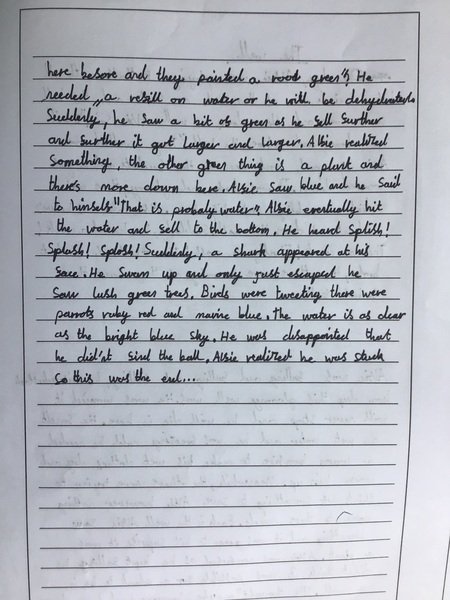 here before and they painted a green", He
needed, a refill on water or he will be dehydrated.
Suddenly, he saw a bit of green as he fell further
and further it got larger and larger. Alfie realized
something, the other green thing is a plant and
there's more down here. Alfie saw blue and he said
to himself "That is probaly water". Alfie eventually hit
the water and fell to the bottom. He heard Splish!
Splash! Splosh! Suddenly, a shark appeared at his
face. He swam up and only just escaped he
saw lush green trees. Birds were tweeting there were
parrots ruby red and marine blue. The water is as clear
as the bright blue sky. He was disappointed that
he did'nt find the ball. Alfie realized he was stuck
so this was the end...